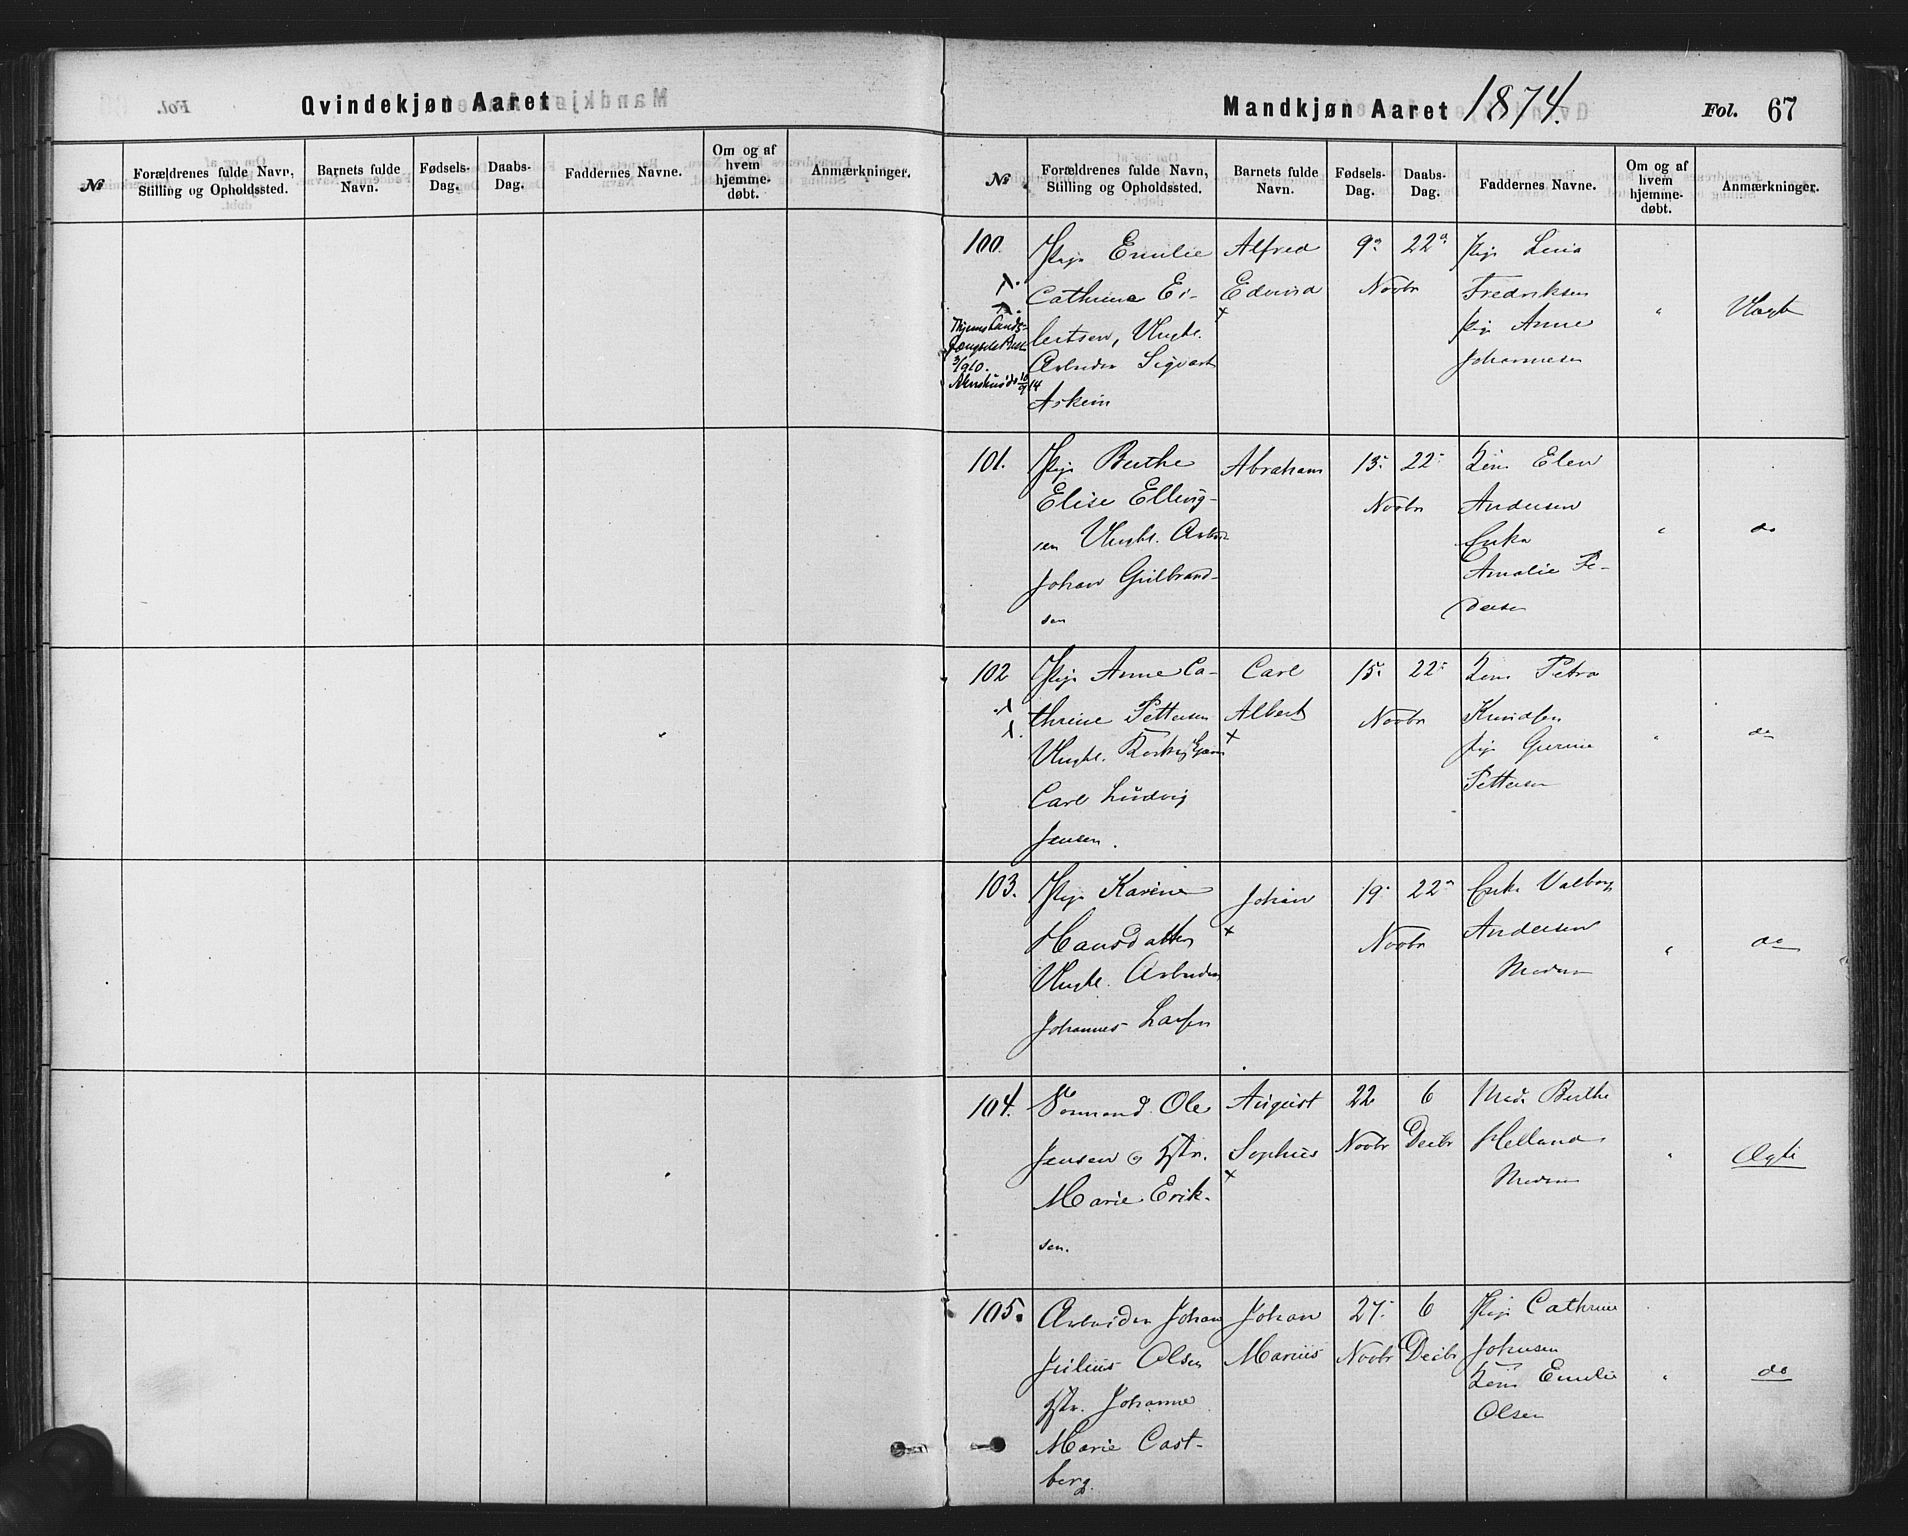 Qvindekjøn Aaret
Fol.
№
Forældrenes fulde Navn,
Stilling og Opholdssted.
Barnets fulde
Navn.
Fødsels-
Dag.
Daabs-
Dag.
Faddernes Navne.
Om og af
hvem
hjemme-
døbt.
Anmærkninger.
Mandkjøn Aaret 1874.
Fol. 67
№
Forældrenes fulde Navn,
Stilling og Opholdssted.
Barnets fulde
Navn.
Fødsels-
Dag.
Daabs-
Dag.
Faddernes Navne.
Om og af
hvem
hjemme-
døbt.
Anmærkninger.
100.
Pige Emilie
Cathrine Ei-
lertsen, Ungkl.
Arbeider Sigvart
Askeim
Alfred
Edvard
9
22
Novbr
Pige Lina
Fredriksen
Pige Anne
Johannesen
"
Uægte
101.
Pige Berthe
Elise Elling-
sen Ungkl. Arbeid
Johan Gulbrand-
sen
Abraham
13
22
Novbr
Kone Elen
Andersen
Enke
Amalie Pe-
dersen
"
do
102
Pige Anne Ca-
thrine Pettersen
Ungkl.
Carl Ludvig
Jensen.
Carl
Albert
15
22
Novbr
Kone Petra
Knudsen
Pige Gurine
Pettersen
"
do
103.
Pige Karine
Hansdatter
Ungkl. Arbeider
Johannes Larsen
Johan
19
22
Novbr
Enke Valborg
Andersen
Moderen
"
do
104.
Sømand Ole
Jensen og Hstr.
Marie Erik-
sen.
August
Sophus
22
Novbr
6
Decbr
Mad. Berthe
Helland
Moderen
"
Ægte
105.
Arbeider Johan
Julius Olsen
Hstr. Johanne
Marie Cast-
berg.
Johan
Marius
27
Novbr
6
Decbr
Pige Cathrine
Johnsen
Kone Emilie
Olsen
"
do